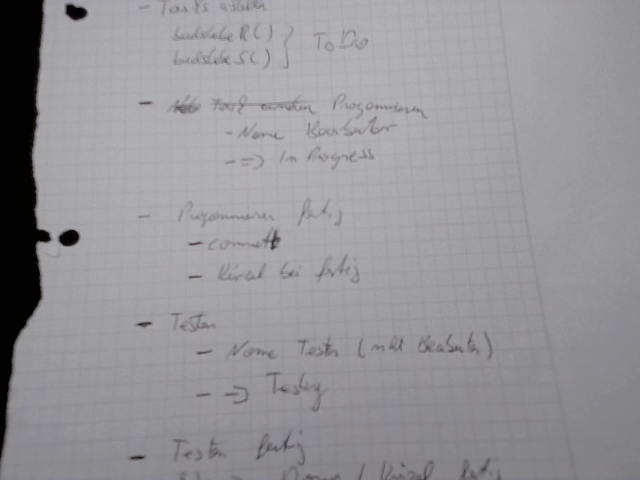 - Tasks erstellen
buchstabeR() } ToDo
buchstabeS()
- Programmieren
- Name Bearbeiter
- => In Progress
- Programmieren fertig
- commit
- Kürzel bei fertig
- Testen
- Name Tester (nicht Bearbeiter)
- => Testing
- Testen fertig
=> / Kürzel fertig